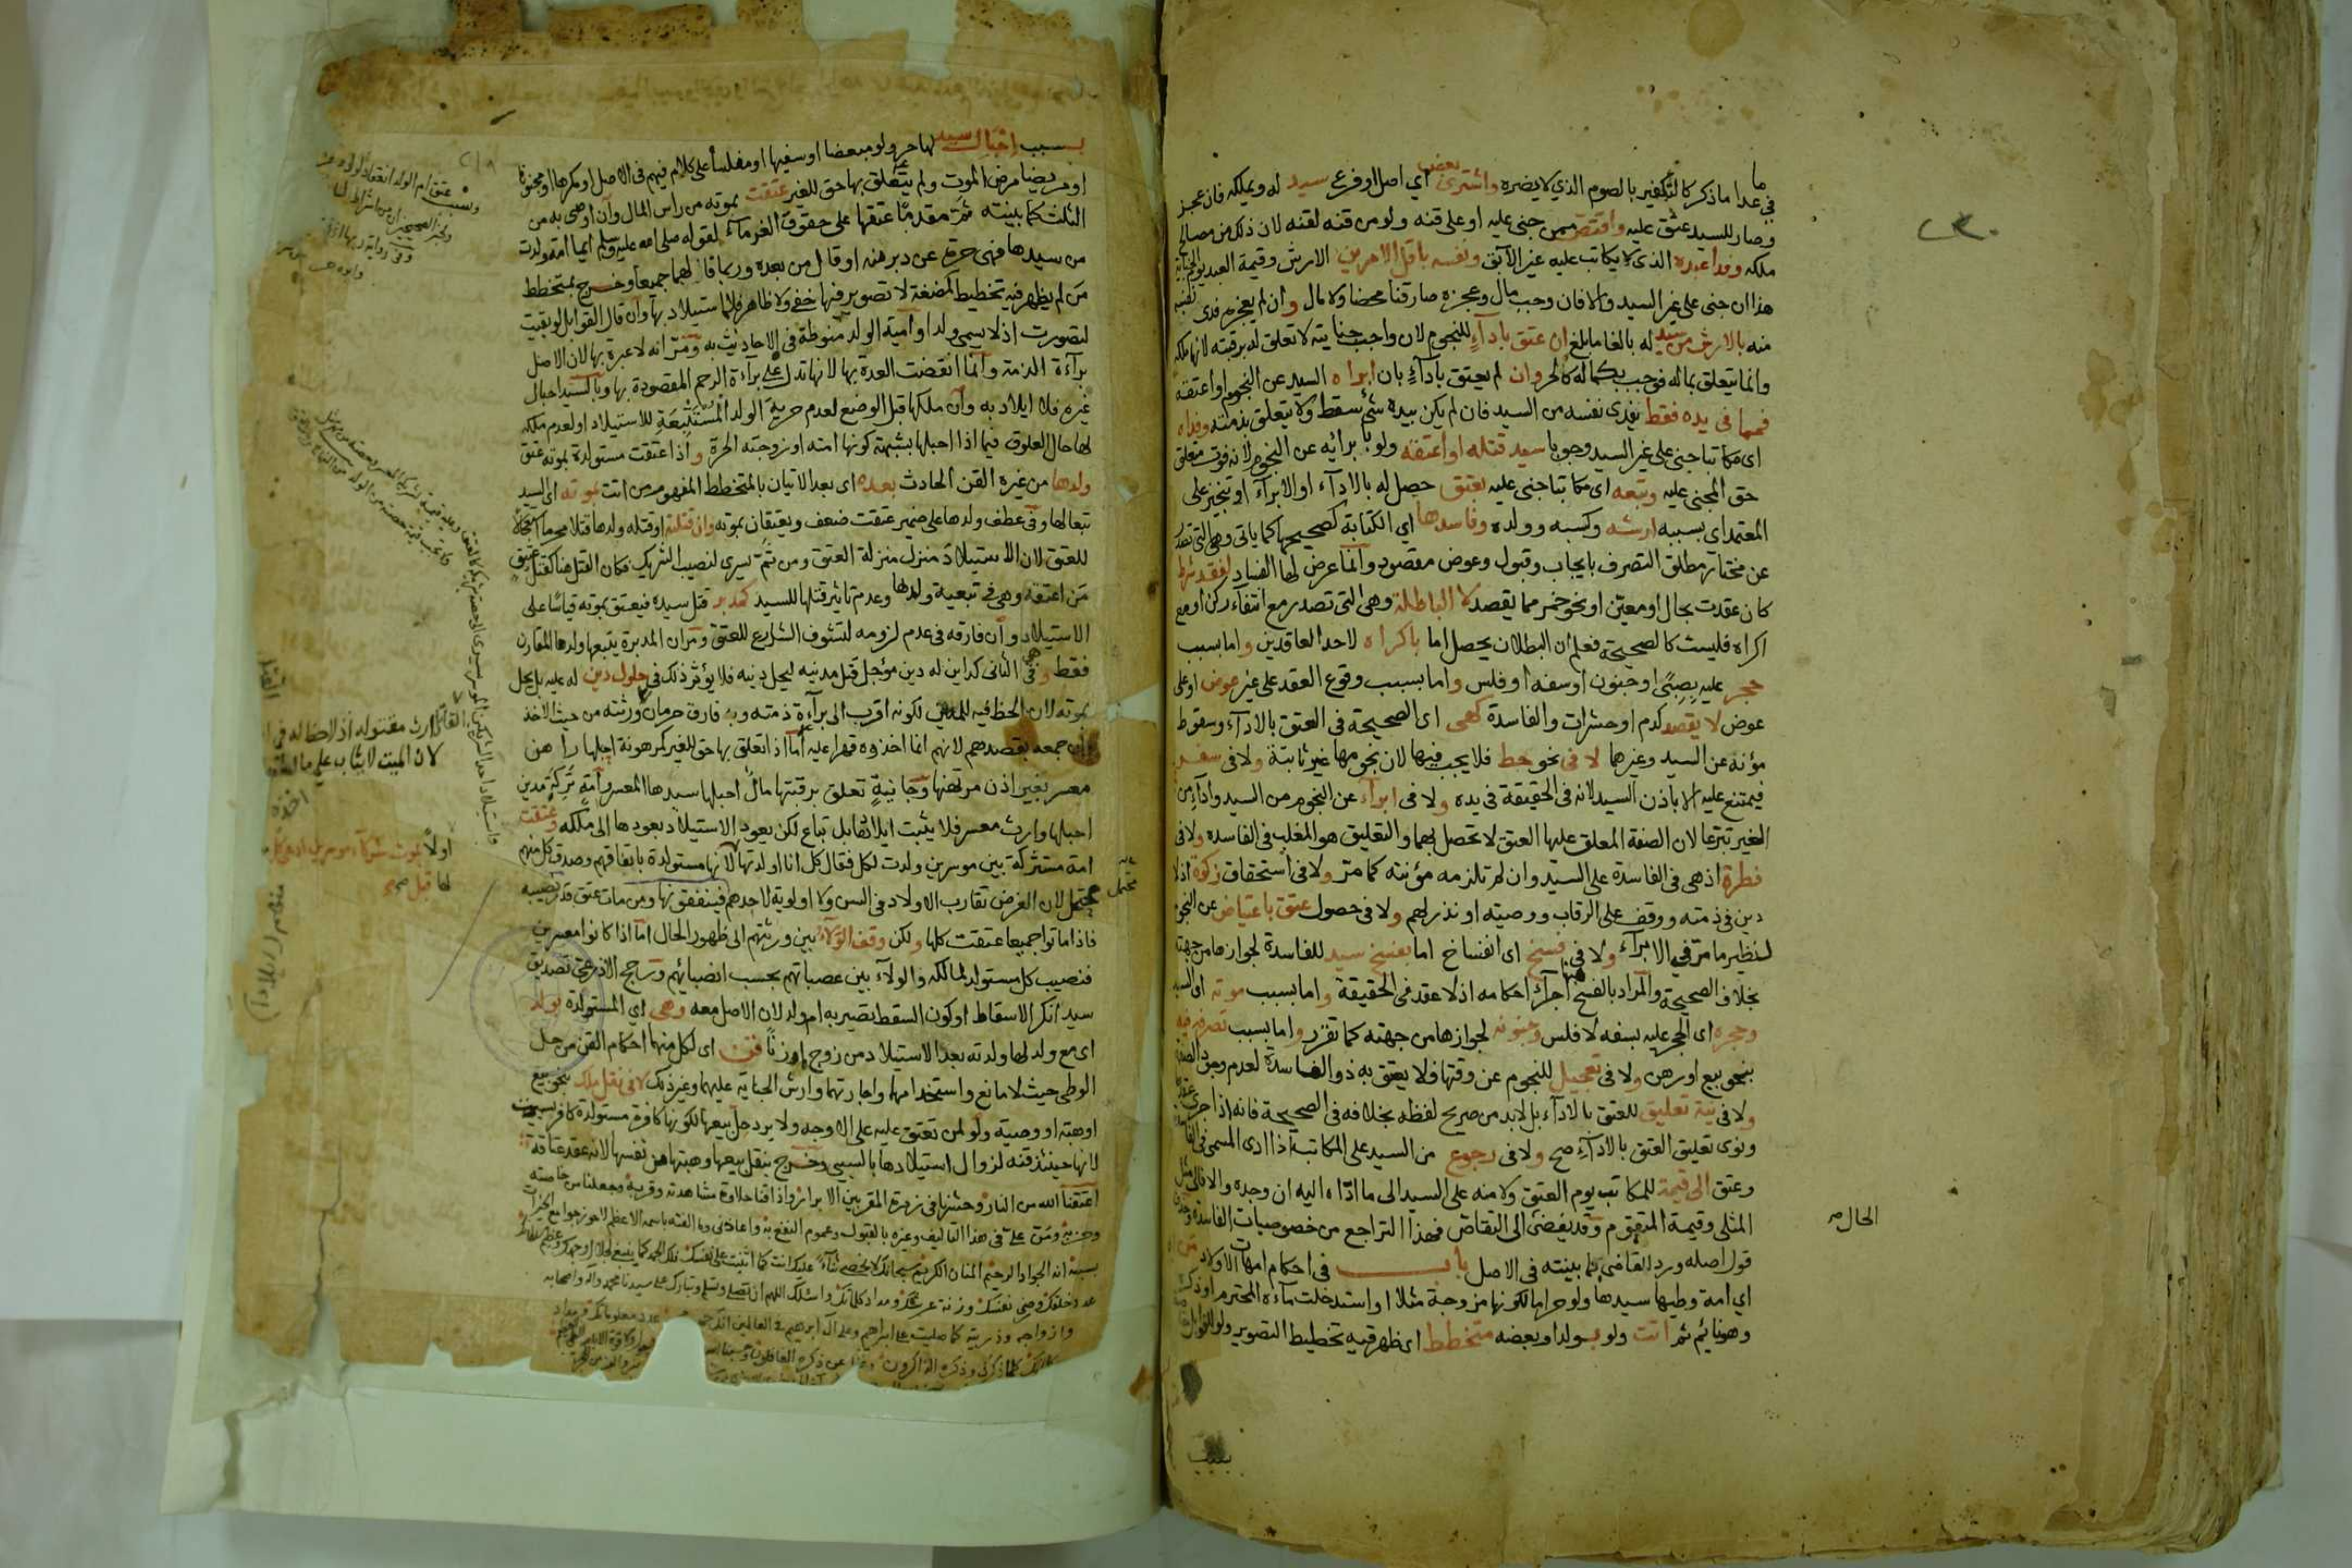 في ما عدا ما ذكر كالتكفير بالصوم الذي لا يضره واشترى بعض اي اصل او فرع سيد له ويملكه فان عجز
وصار للسيد عتق عليه واقتص ممن جنى عليه او على قنه ولو من قنه لقنه لان ذلك من مصالح
ملكه وفدا عبده الذي لا يكاتب عليه غير الآبق ونفسه باقل الامرين الارش وقيمة العبد يوم الجناية
هذا ان جنى على غير السيد والا فان وجب مال وعجزه صار قنا محضا ولا مال وان لم يعجزه فدى نفسه
منه بالارش من سيد له بالغا ما بلغ ان عتق باداء للنجوم لان واجب جنايته لا تعلق له برقبته لانها ملكه
وانما يتعلق بماله فوجب بكماله كالحر وان لم يعتق بادآء بان ابراه السيد عن النجوم او اعتقه
فمما في يده فقط يفدى نفسه من السيد فان لم يكن بيده شئ سقط ولا يتعلق بذمته وفداه
اى مكاتبا جنى على غير السيد وجوبا سيد قتله او اعتقه ولو بابرائه عن النجوم لانه فوت متعلق
حق المجنى عليه وتبعه اى مكاتبا جنى عليه بعتق حصل له بالادآء او الابرآء او تنجيز على
المعتمد اى بسببه ارشه وكسبه وولده وفاسدها اي الكتابة كصحيحها كما ياتى وهي التي تصدر
عن مختار مطلق التصرف بايجاب وقبول وعوض مقصود وانما عرض لها الفساد لفقد شرط
كان عقدت بحال او معين او نحو خمر مما يقصد لا الباطلة وهى التى تصدر مع انتفآء ركن او مع
اكراه فليست كالصحيحة فعلم ان البطلان يحصل اما باكراه لاحد العاقدين واما بسبب
حجر عليه بصبى او جنون او سفه او فلس واما بسبب وقوع العقد على غير عوض او على
عوض لا يقصد كدم او حشرات والفاسدة كهى اى الصحيحة فى العتق بالادآء وسقوط
مؤنه عن السيد وغيرهما لا فى نحو حط فلا يجب فيها لان نجومها غير ثابتة ولا فى سفر
فيمتنع عليه الا باذن السيد لانه فى الحقيقة فى يده ولا فى ابرآء عن النجوم من السيد وادآء من
الغير تبرعا لان الصفة المعلق عليها العتق لا تحصل بهما والتعليق هو المغلب فى الفاسدة ولا فى
فطرة اذ هى فى الفاسدة على السيد وان لم تلزمه مؤنته كما مر ولا فى استحقاق زكوة اذ لا
دين فى ذمته ووقف على الرقاب ووصيته او نذر لهم ولا فى حصول عتق باعتياض عن النجوم
لنظير ما مر في الابرآء ولا فى فسخ اى انفساخ اما بفسخ سيد للفاسدة لجوازها من جهته
بخلاف الصحيحة والمراد بالفسخ هنا اجرآء احكامه اذ لا عقد فى الحقيقة واما بسبب موته اى السيد
وحجره اى الحجر عليه بسفه لا فلس وجنونه لجوازها من جهته كما تقرر واما بسبب تصرفه فيه
بنحو بيع او رهن ولا فى تعجيل للنجوم عن وقتها فلا يعتق به ذو الفاسدة لعدم وجود الصفة
ولا فى نية تعليق للعتق بالادآء بل لا بد من صريح لفظه بخلافه فى الصحيحة فانه اذا جرى عقدها
ونوى تعليق العتق بالادآء صح ولا فى رجوع من السيد على المكاتب اذا ادى المسمى فى الفاسدة
وعتق الى قيمة للمكاتب يوم العتق ولا منه على السيد الى ما ادّاه اليه ان وجده والا فالى مثل
المثلى وقيمة المتقوم وقد يفضى الى التقاص فهذا التراجع من خصوصيات الفاسدة
قول اصله ورد القاضى لما بينته فى الاصل باب فى احكام امهات الاولاد من
اي امة وطيها سيدها ولو حراما لكونها مزوجة مثلا او استدخلت مآءه المحترم او ذكره
وهو نائم ثم اتت ولو بولد او بعضه متخطط اى ظهر فيه تخطيط التصوير ولو للقوابل
الحال صح
بسبب احبال سيد لها حر ولو مبعضا او سفيها او مفلسا على كلام فيهم فى الاصل او مكرها او مجنونا
او مريضا مرض الموت ولم يتعلق بها حق للغير عتقت بموته من راس المال وان اوصى به من
الثلث كما بينته ثمت مقدما عتقها على حقوق الغرمآء لقوله صلى الله عليه وسلم ايما امة ولدت
من سيدها فهى حرة عن دبر منه او قال من بعده وربما قالهما جميعا وخرج بمتخطط
من لم يظهر فيه تخطيط كمضغة لا تصوير فيها خفى ولا ظاهر فلا استيلاد بها وان قال القوابل لو بقيت
لتصورت اذ لا يسمى ولدا وامية الولد منوطة فى الاحاديث به ومر انه لا عبرة بها لان الاصل
برآءة الذمة وانما انقضت العدة بها لانها تدل على برآءة الرحم المقصودة بها وبالسيد احبال
غيره فلا ايلاد به وان ملكها قبل الوضع لعدم حرية الولد المستتبعة للاستيلاد او لعدم ملكه
لها حال العلوق فيما اذا احبلها بشبهة كونها امته او زوجته الحرة واذا عتقت مستولدة بموته عتق
ولدها من غيره القن الحادث بعده اى بعد الاتيان بالمتخطط المفهوم من اتت بموته اى السيد
تبعا لها وفى عطف ولدها على ضمير عتقت ضعف ويعتقان بموته وان قتلته او قتله ولدها قتلا محرما
للعتق لان الاستيلاد منزل منزلة العتق ومن ثم يسرى لنصيب الشريك فكان القتل هنا كقتل عتيق
من اعتقه وهى فى تبعية ولدها وعدم تاثير قتلها للسيد كمدبر قتل سيده فيعتق بموته قياسا على
الاستيلاد وان فارقه فى عدم لزومه لتشوف الشارع للعتق ومر ان المدبرة يتبعها ولدها المقارن
فقط وهى فى الثانى كداين له دين مؤجل قتل مدينه ليحل دينه فلا يؤثر ذلك فى حلول دين له عليه بل يحل
بموته لان الحظ فيه للمدين لكونه اقرب الى برآءة ذمته وبه فارق حرمان ورثته من حيث الاخذ
جمعه بقصدهم لانهم انما اخذوه قهرا عليه اما اذا تعلق بها حق للغير كمرهونة احبلها راهن
معسر بغير اذن مرتهنها وجانية تعلق برقبتها مال احبلها سيدها المعسر وامة تركة مدين
احبلها وارث معسر فلا يثبت ايلادها بل تباع لكن يعود الاستيلاد بعودها الى ملكه وعتقت
امة مشتركة بين موسرين ولدت لكل فقال كل انا اولدتها لانها مستولدة باتفاقهم وصدق كل منهم
محتمل لان الفرض تقارب الاولاد فى السن ولا اولوية لاحدهم فينفق بها ومن مات عتق قدر نصيبه
فاذا ماتوا جميعا عتقت كلها ولكن وقف الولآء بين ورثتهم الى ظهور الحال اما اذا كانوا معسرين
فنصيب كل مستولد لمالكه والولآء بين عصباتهم بحسب انصبائهم ورجح الاذرعى تصديق
سيد انكر الاسقاط او كون السقط تصير به ام ولد لان الاصل معه وهى اي المستولدة بولد
اى مع ولد لها ولدته بعد الاستيلاد من زوج او زنا قن اى لكل منهما احكام القن من حل
الوطى حيث لا مانع واستخدامهما واجارتهما وارش الجناية عليهما وغير ذلك لا فى نقل ملك بنحو بيع
او هبة او وصية ولو لمن تعتق عليه على الاوجه ولا يرد حل بيعها لكونها كافرة مستولدة كافر سبيت
لانها حينئذ قنة لزوال استيلادها بالسبى وخرج بنقل بيعها وهبتها من نفسها لانه عقد عتاقة
اعتقنا الله من النار وحشرنا فى زمرة المقربين الابرار واذاقنا حلاوة مشاهدته وقربه وجعلنا من خاصته
وحزبه ومن على فى هذا التاليف وغيره بالقبول وعموم النفع به واعاذنى وما الفته باسمه الاعظم
بسببه انه الجواد الرحيم المنان الكريم سبحانك لا نحصى ثنآء عليك انت كما اثنيت على نفسك فلك الحمد كما ينبغى لجلال وجهك وعظيم سلطانك
عدد خلقك ورضى نفسك وزنة عرشك ومداد كلماتك واسئلك اللهم ان تصلى وتسلم وتبارك على سيدنا محمد واله واصحابه
وازواجه وذريته كما صليت على ابراهيم وعلى آل ابراهيم فى العالمين انك حميد مجيد عدد معلوماتك ومداد
كلماتك كلما ذكرك وذكره الذاكرون وغفل عن ذكره الغافلون
وسبب عتق ام الولد انعقاد الولد حر
القاتل ارث مقتوله اذ لاحظ له فى
لان الميت لا يثاب على ما
اولا بموت شركآء موسرين ادعى كل
لها قبل صح
محتمل